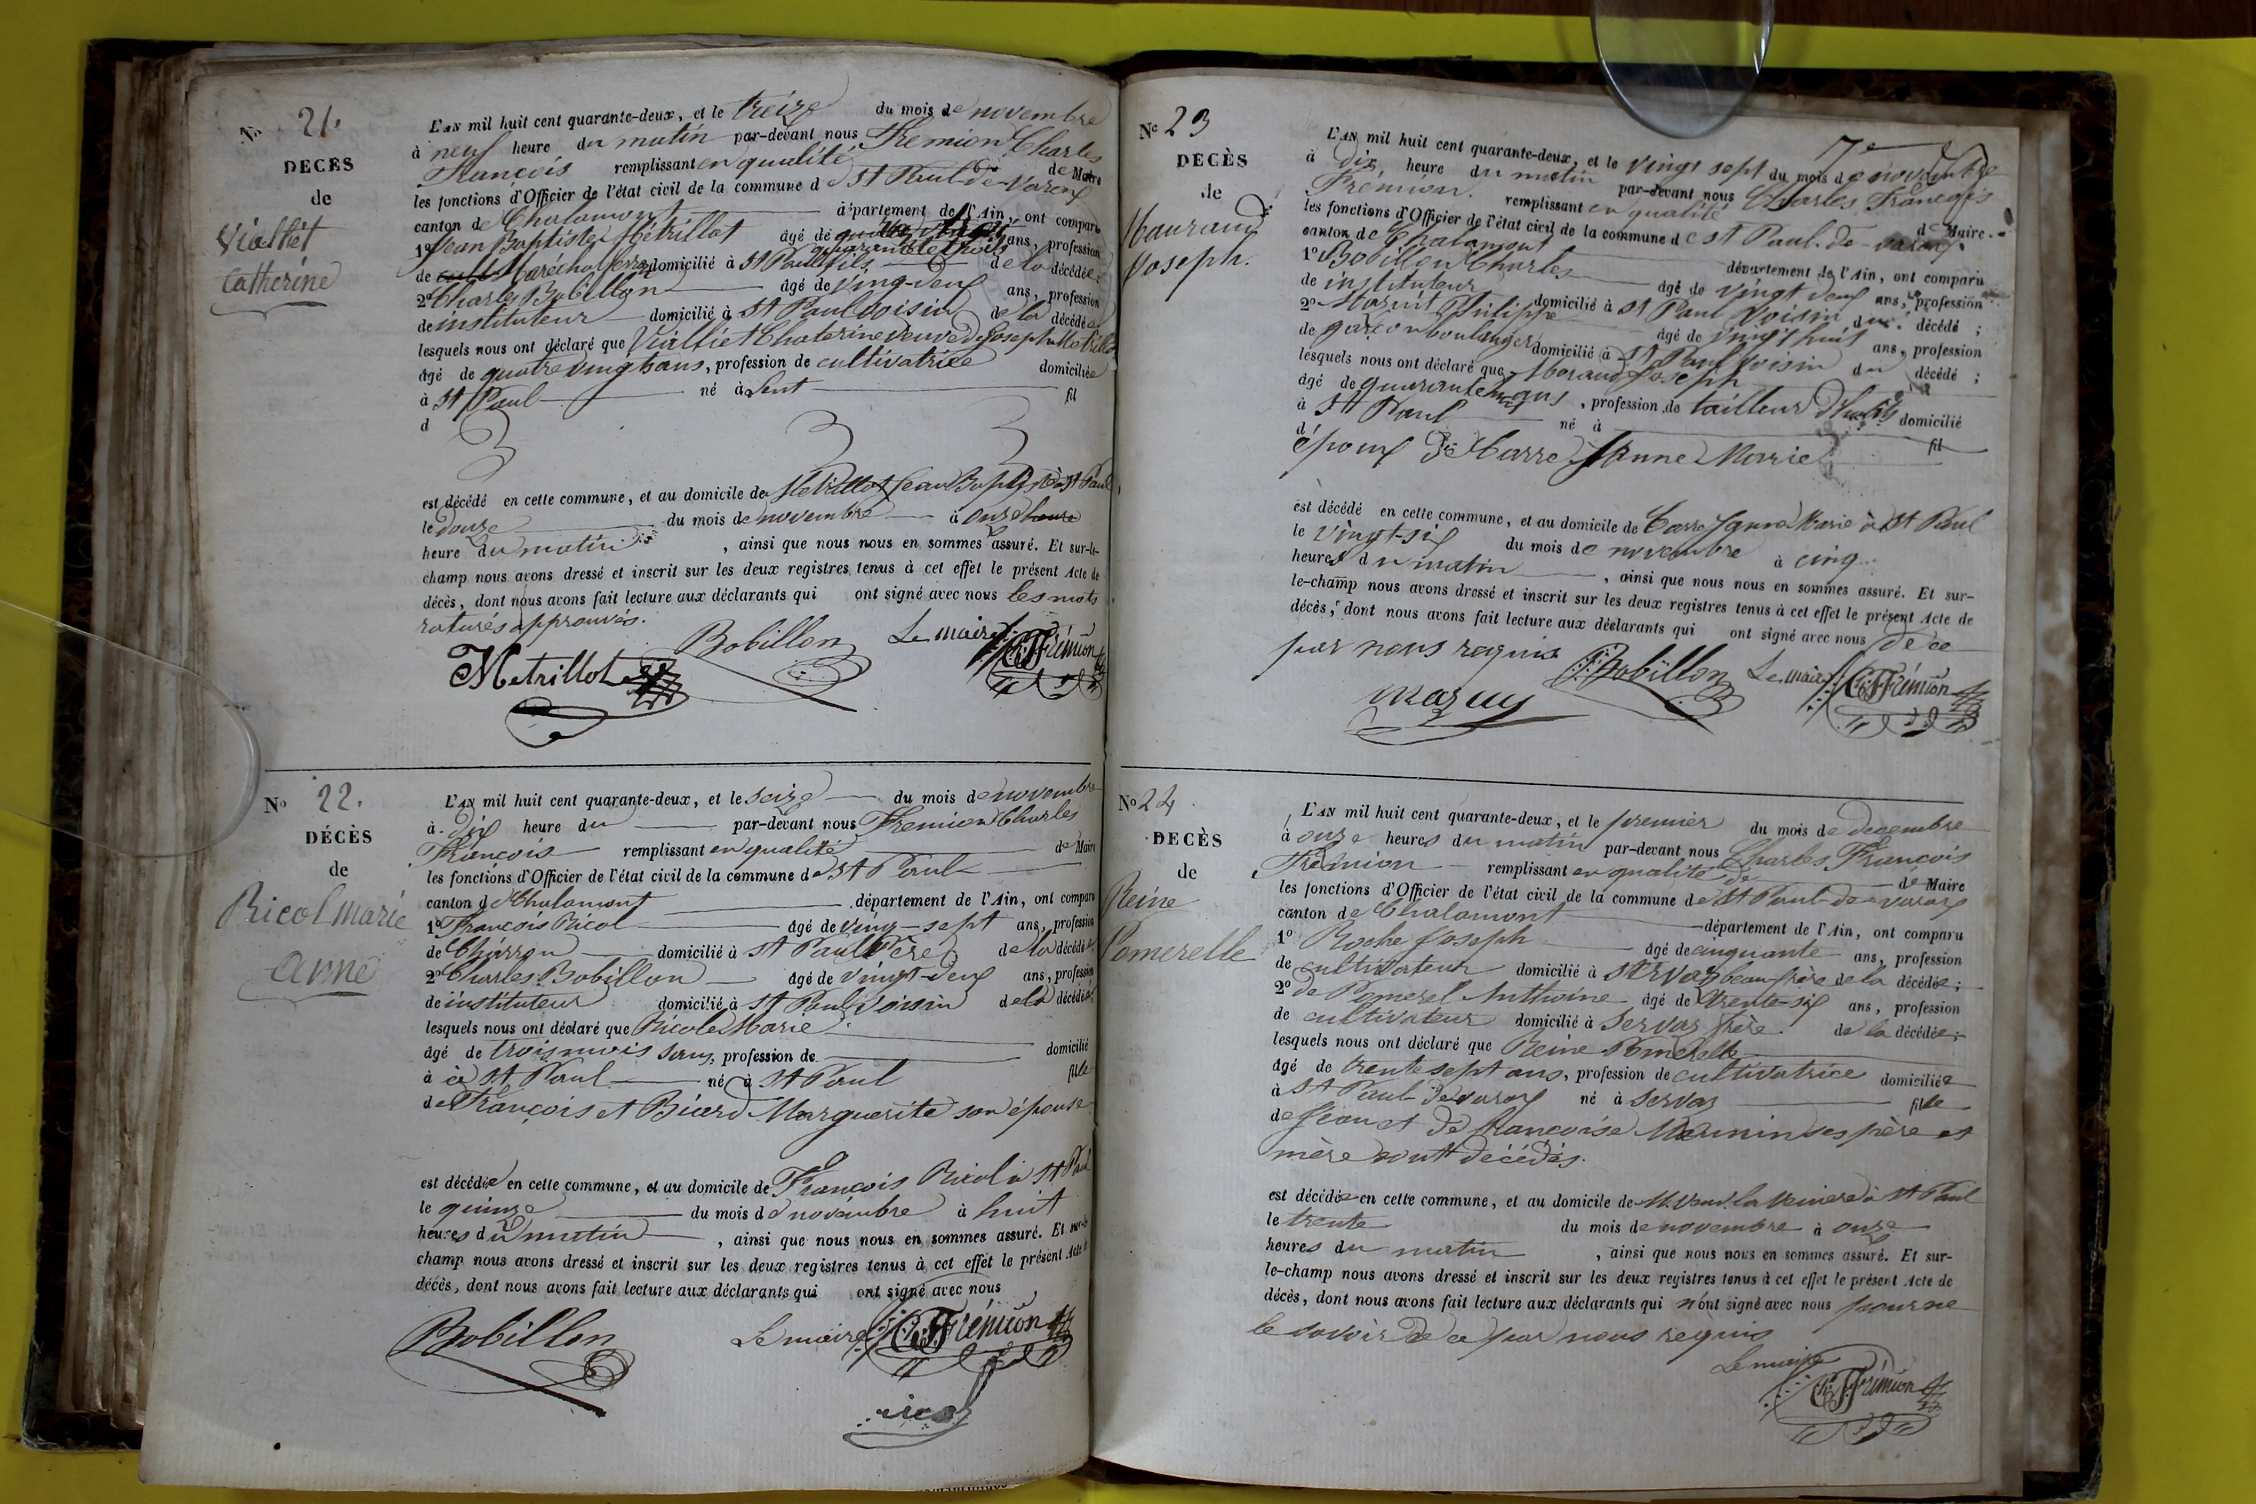 No 21.
DECÈS
de
Viallet
Catherine
L'AN mil huit cent quarante-deux, et le treize du mois de novembre
à neuf heure du matin par-devant nous Fremion Charles
François remplissant en qualité de Maire
les fonctions d'Officier de l'état civil de la commune de St Paul-de-Varax
canton de Chalamont département de l'Ain, ont comparu
1º Jean Baptiste Métrillot âgé de quarante trois ans, profession
de Maréchal domicilié à St Paul fils de la décédée;
2º Charles Bobillon âgé de vingt-deux ans, profession
de instituteur domicilié à St Paul voisin de la décédée
lesquels nous ont déclaré que Viallet Chaterine veuve de Joseph Metrillot
âgé de quatre vingt ans, profession de cultivatrice domiciliée
à St Paul né à Lent fil
d
est décédé en cette commune, et au domicile de Metrillot Jean Baptiste à St Paul
le douze du mois de novembre à onze heure
heure du matin, ainsi que nous nous en sommes assuré. Et sur-le-
champ nous avons dressé et inscrit sur les deux registres tenus à cet effet le présent Acte de
décès, dont nous avons fait lecture aux déclarants qui ont signé avec nous les mots
raturés approuvés.
Metrillot Bobillon Le maire Frémion
No 22.
DÉCÈS
de
Ricol Marie
Anne
L'AN mil huit cent quarante-deux, et le seize du mois de novembre
à dix heure du par-devant nous Fremion Charles
François remplissant en qualité de Maire
les fonctions d'Officier de l'état civil de la commune de St Paul
canton de Chalamont département de l'Ain, ont comparu
1º François Ricol âgé de vingt-sept ans, profession
de Charron domicilié à St Paul Père de la décédée
2º Charles Bobillon âgé de vingt-deux ans, profession
de instituteur domicilié à St Paul voisin de la décédée
lesquels nous ont déclaré que Ricol Marie
âgé de trois mois sans, profession de domicilié
à ce St Paul né à St Paul fille
de François et Béard Marguerite son épouse
est décédée en cette commune, et au domicile de François Ricol à St Paul
le quinze du mois de novembre à huit
heures du matin, ainsi que nous nous en sommes assuré. Et sur-le-
champ nous avons dressé et inscrit sur les deux registres tenus à cet effet le présent Acte de
décès, dont nous avons fait lecture aux déclarants qui ont signé avec nous
Bobillon Le maire Frémion
ricol
7e
No 23
DECÈS
de
Mauraud
Joseph.
L'AN mil huit cent quarante-deux, et le vingt sept du mois de novembre
à dix heure du matin par-devant nous Charles François
Frémion. remplissant en qualité de Maire
les fonctions d'Officier de l'état civil de la commune de St Paul-de-varax
canton de Chalamont département de l'Ain, ont comparu
1º Bobillon Charles âgé de vingt deux ans, profession
de instituteur domicilié à St Paul voisin du décédé;
2º Maruit Philippe âgé de vingt huit ans, profession
de garçon boulanger domicilié à St Paul voisin du décédé;
lesquels nous ont déclaré que Moraud Joseph
âgé de quarante ans, profession de tailleur d'habits domicilié
à St Paul né à fil
d époux de Carre Janne Marie
est décédé en cette commune, et au domicile de Carre Janne Marie à St Paul
le vingt-six du mois de novembre à cinq
heures du matin, ainsi que nous nous en sommes assuré. Et sur-
le-champ nous avons dressé et inscrit sur les deux registres tenus à cet effet le présent Acte de
décès, dont nous avons fait lecture aux déclarants qui ont signé avec nous de ce
par nous requis
Bobillon Le maire Frémion
No 24.
DECÈS
de
Reine
Pomerelle
L'AN mil huit cent quarante-deux, et le premier du mois de decembre
à onze heures du matin par-devant nous Charles François
Frémion remplissant en qualité de de Maire
les fonctions d'Officier de l'état civil de la commune de St Paul-de-varax
canton de Chalamont département de l'Ain, ont comparu
1º Roche Joseph âgé de cinquante ans, profession
de cultivateur domicilié à servas beau frère de la décédée;
2º de Pomerel Anthoine âgé de trente-six ans, profession
de cultivateur domicilié à Servas frère de la décédée;
lesquels nous ont déclaré que Reine Pomerelle
âgé de trente sept ans, profession de cultivatrice domiciliée
à St Paul de varax né à servas fille
de Jean et de francoise Mermin ses père et
mère sont décédés.
est décédée en cette commune, et au domicile de à St Paul
le trente du mois de novembre à onze
heures du matin, ainsi que nous nous en sommes assuré. Et sur-
le-champ nous avons dressé et inscrit sur les deux registres tenus à cet effet le présent Acte de
décès, dont nous avons fait lecture aux déclarants qui n'ont signé avec nous pour ne
le savoir de ce par nous requis
Le maire
Frémion